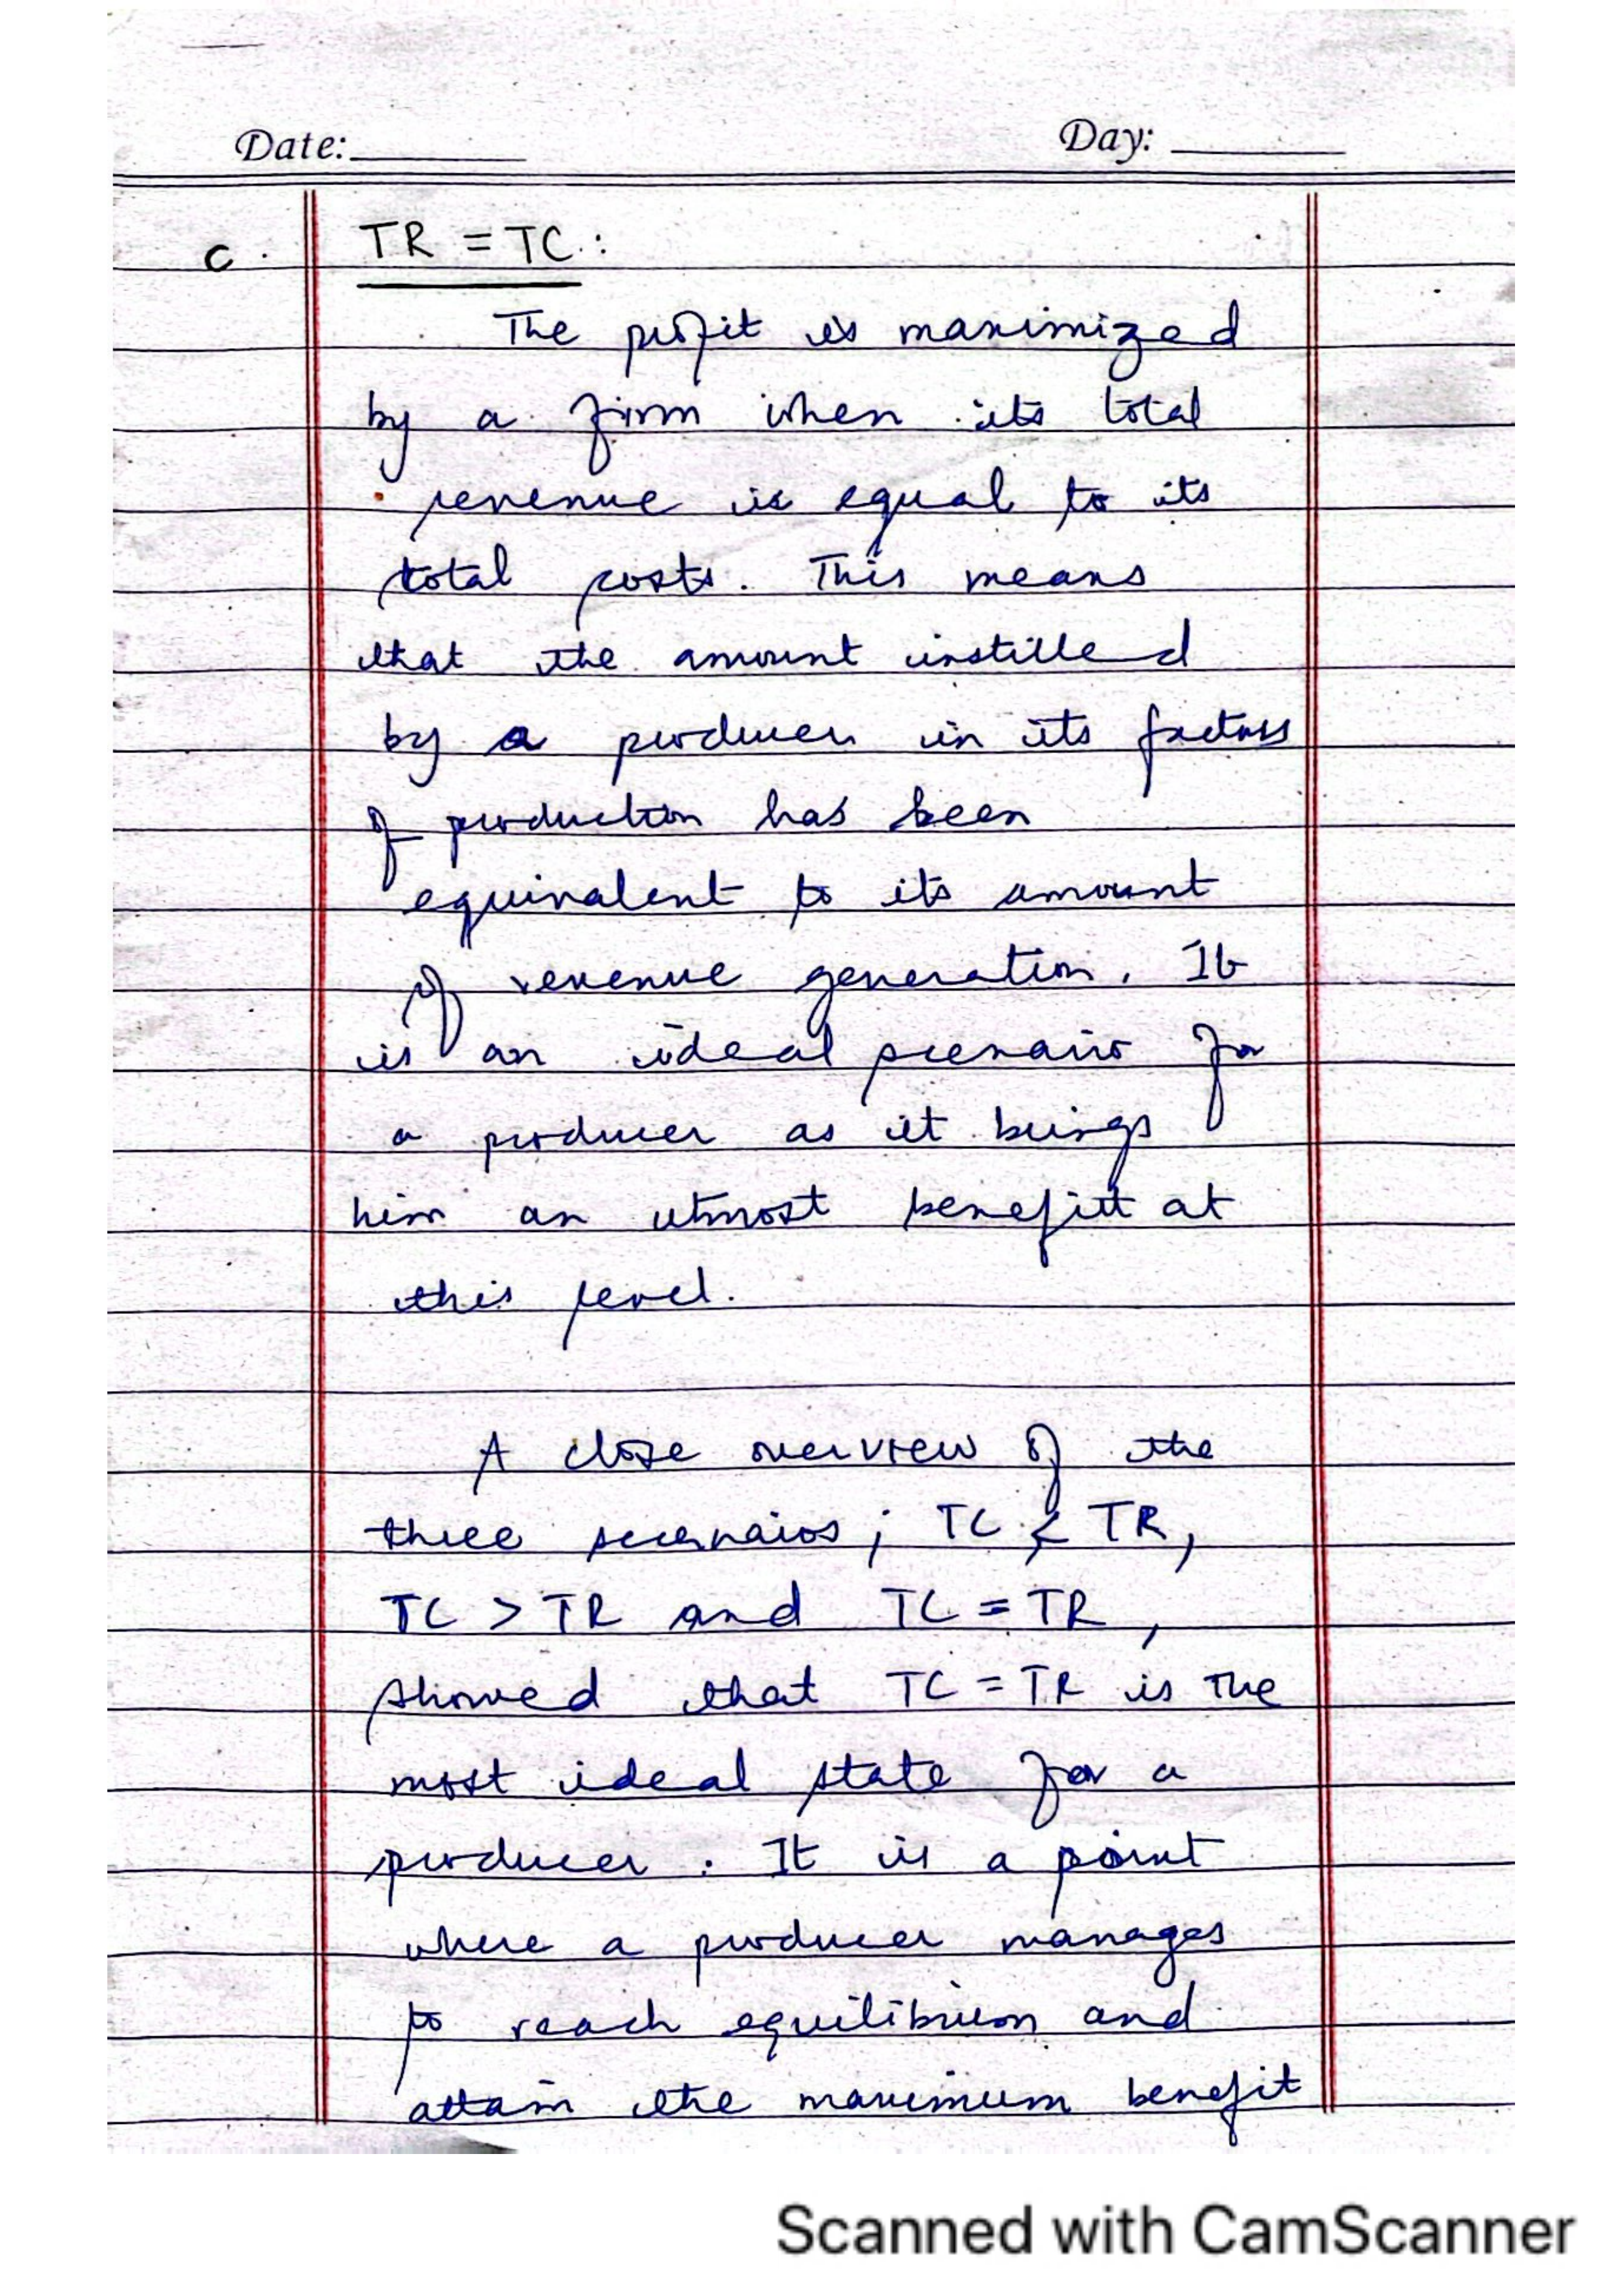 Date:
Day:
c. TR = TC :
The profit is maximized
by a firm when its total
revenue is equal to its
total costs. This means
that the amount instilled
by a producer in its factors
of production has been
equivalent to its amount
of revenue generation. It
is an ideal scenario for
a producer as it brings
him an utmost benefitt at
this level.
A close overview of the
three scenarios ; TC < TR,
TC > TR and TC = TR,
showed that TC = TR is the
most ideal state for a
producer. It is a point
where a producer manages
to reach equilibrium and
attain the maximum benefit
Scanned with CamScanner